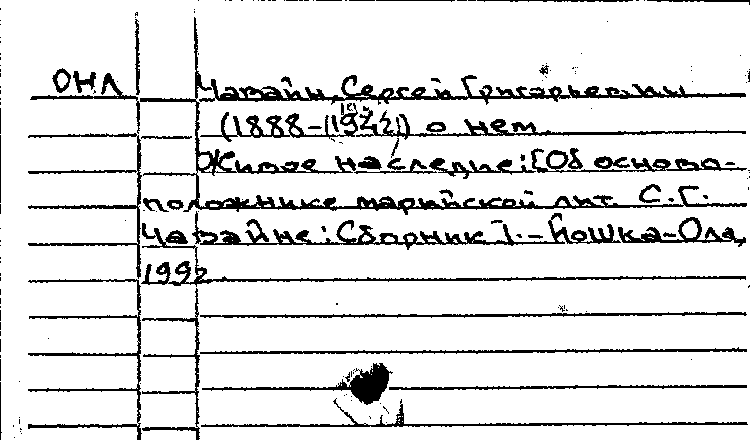 ОНЛ
Чавайн, Сергей Григорьевич
(1888-(1942)) о нем.
Живое наследие: [Об осново-
положнике марийской лит. С.Г.
Чавайне: Сборник]. - Йошка-Ола,
1992.